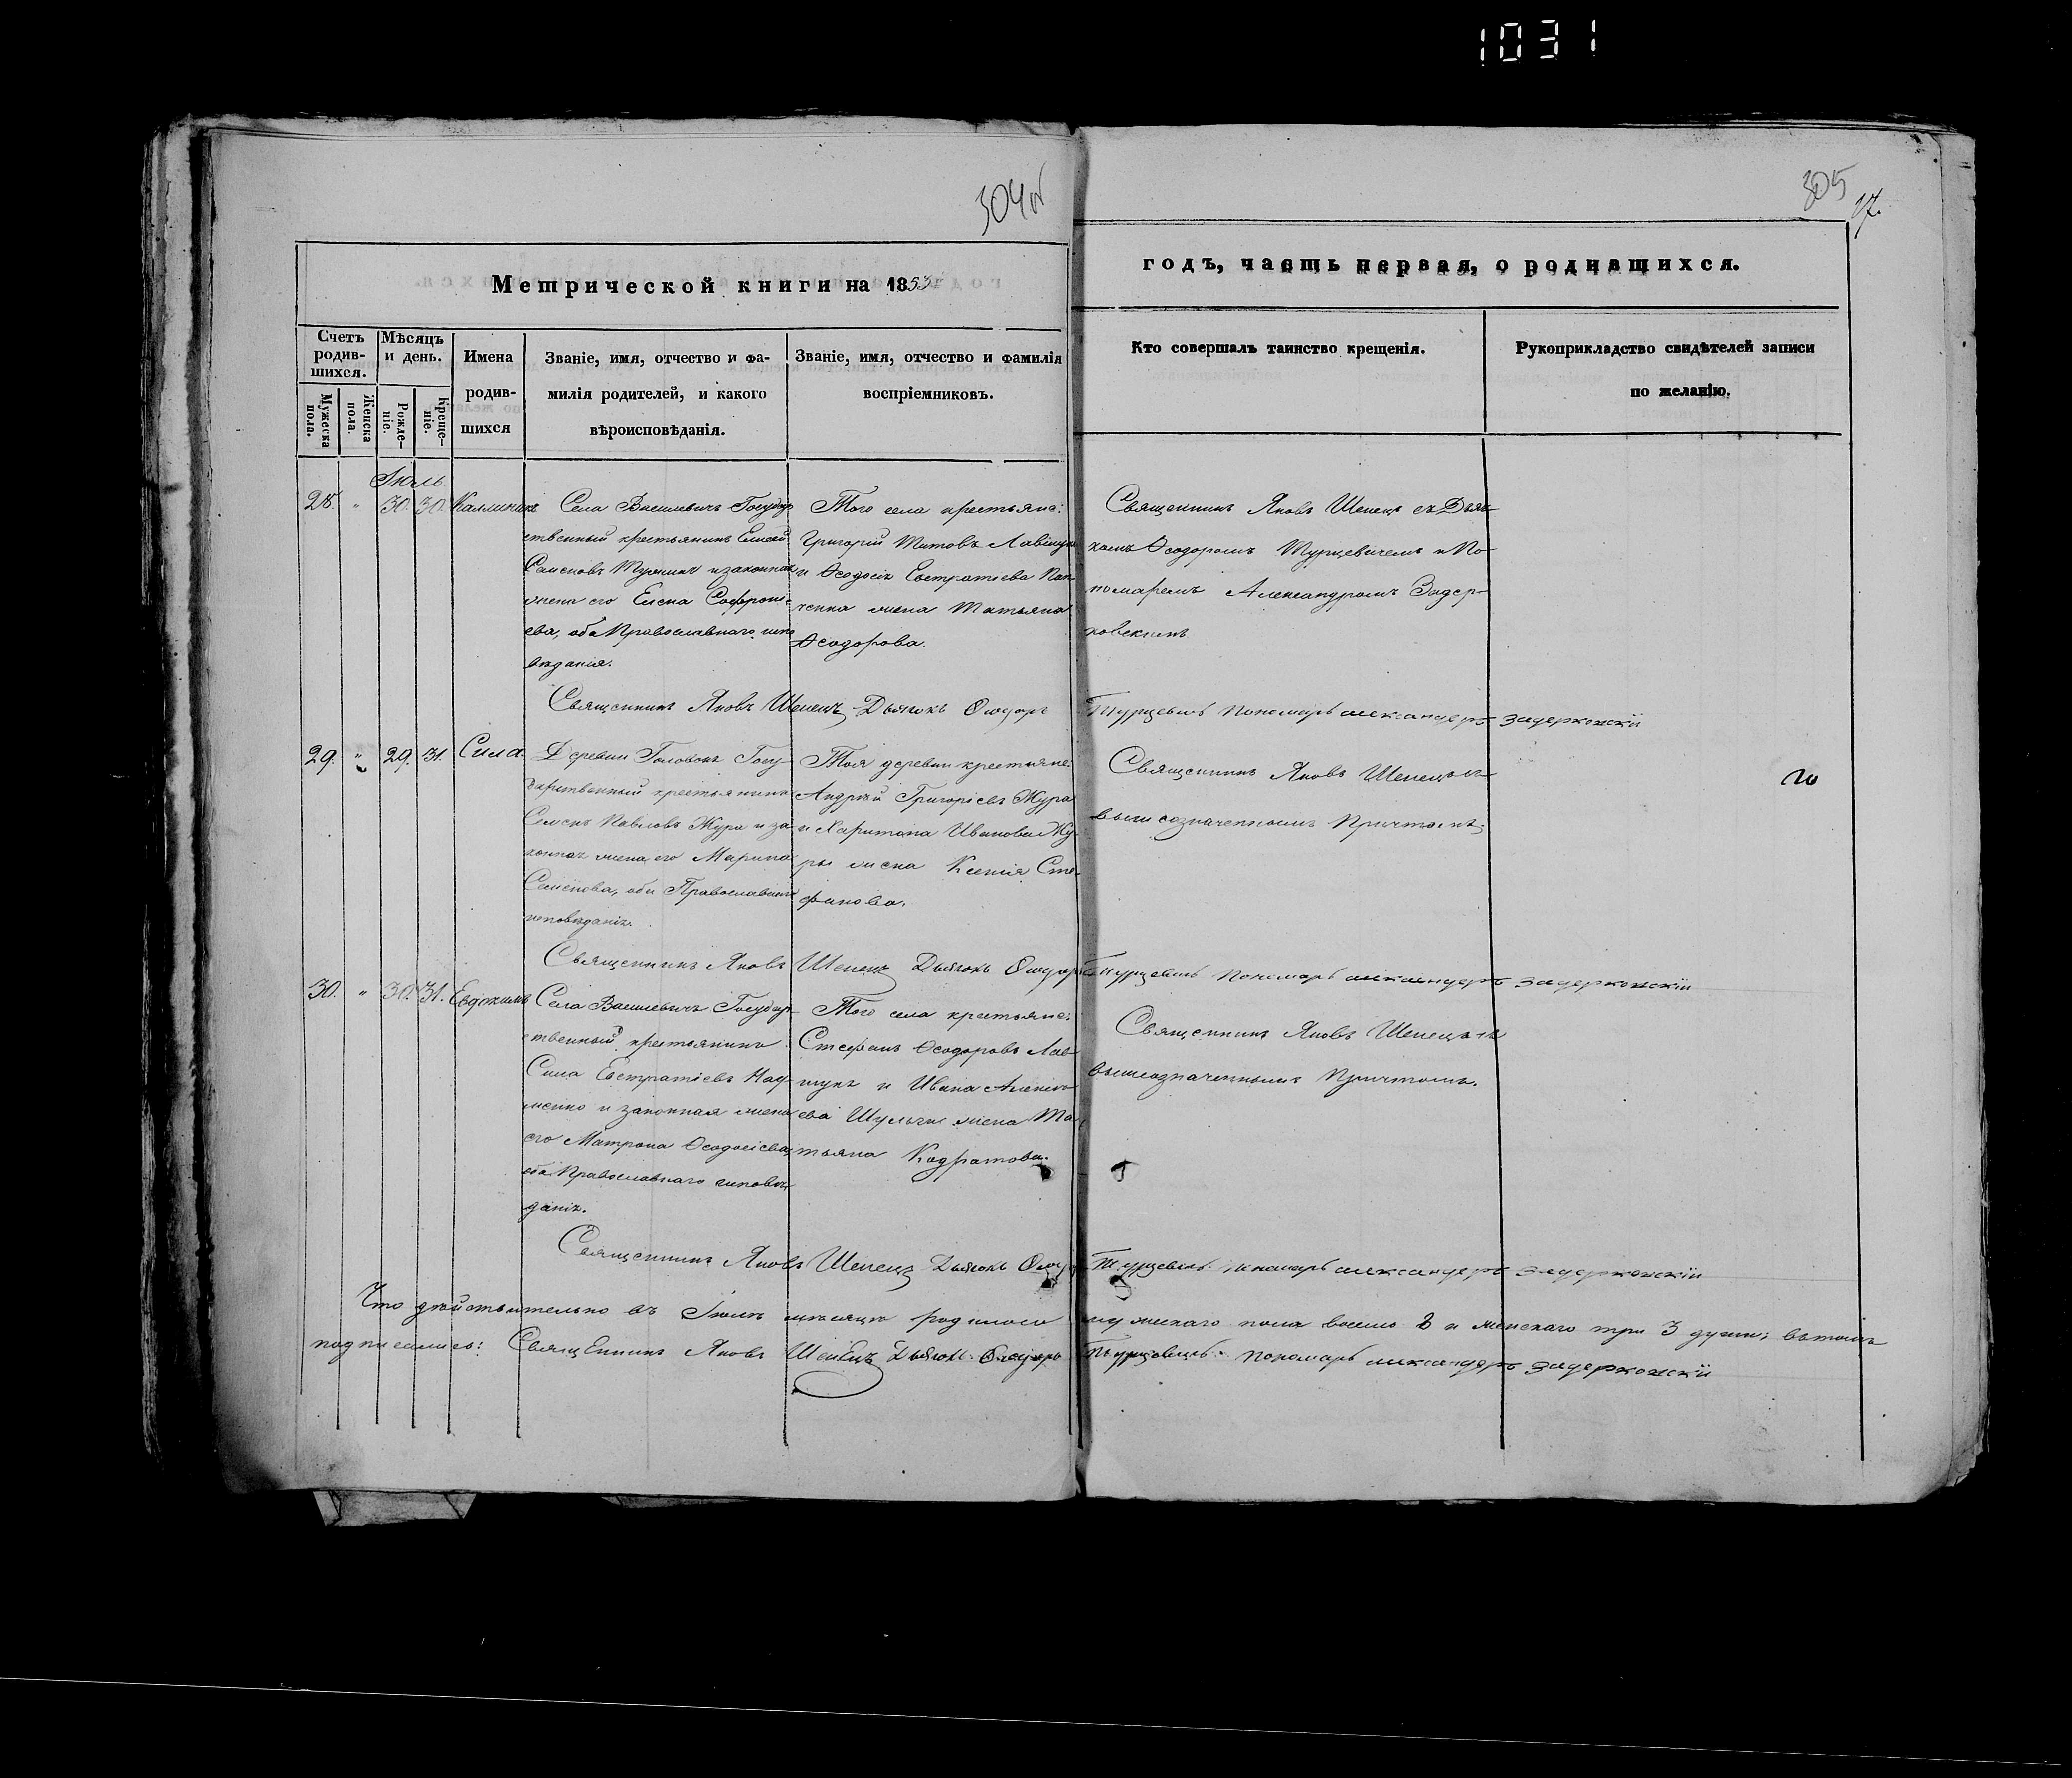 1031
304 об
305
17.
Метрической книги на 1853
годъ, часть первая, о родившихся.
Счетъ родив-шихся.
Мужеска пола.
Женска пола.
Мѣсяцъ и день.
Рожде-ніе.
Креще-ніе.
Имена
родив-
шихся
Званіе, имя, отчество и фа-
милія родителей, и какого
вѣроисповѣданія.
Званіе, имя, отчество и фамилія
воспріемниковъ.
Кто совершалъ таинство крещенія.
Рукоприкладство свидѣтелей записи
по желанію.
Іюль.
28. " 30. 30. Каллиникъ
Села Василевичъ Государ-
ственный крестьянинъ Елисей
Семеновъ и законная
жена его Елена Софроні-
ева, оба Православнаго испо
вѣданія.
Того села крестьяне:
Григорій Титовъ
и Ѳеодосія Евстратіева
жена Татьяна
Ѳеодорова.
Священникъ Яковъ Шепецъ съ Дьяч-
комъ Ѳеодоромъ Турцевичемъ и По-
номаремъ Александромъ Задер-
ковскимъ
Священникъ Яковъ Шепецъ Дьячокъ Ѳеодоръ Турцевичъ Пономарь александеръ задерковскій
29. " 29. 31. Сила.
Деревни Головокъ Госу-
дарственный крестьянинъ
Семенъ Павловъ Жура и за-
конная жена его Марина
Семенова, оба Православнаго
исповѣданія.
Тоя деревни крестьяне:
Андрей Григоріевъ Жура
и Харитона Иванова Жу-
ры жена Ксенія Сте-
фанова.
Священникъ Яковъ Шепецъ съ
вышеозначеннымъ Причтомъ.
Священникъ Яковъ Шепецъ Дьячокъ Ѳеодоръ Турцевичъ Пономарь александеръ задерковскій
30. " 30. 31. Евдокимъ
Села Василевичъ Государ-
ственный крестьянинъ
Сила Евстратіевъ Нау-
менко и законная жена
его Матрона Ѳеодосіева,
оба Православнаго исповѣ-
данія.
Того села крестьяне:
Стефанъ Ѳеодоровъ
и Ивана
жена Та-
тьяна Кодратова.
Священникъ Яковъ Шепецъ съ
вышеозначеннымъ Причтомъ.
Священникъ Яковъ Шепецъ Дьячокъ Ѳеодоръ Турцевичъ. Пономарь александеръ задерковскій
Что дѣйствительно въ Іюлѣ мѣсяцѣ родилось мужескаго пола и женскаго три 3 души; въ томъ
подписались: Священникъ Яковъ Шепецъ Дьячокъ Ѳеодоръ Турцевичъ. Пономарь александеръ задерковскій